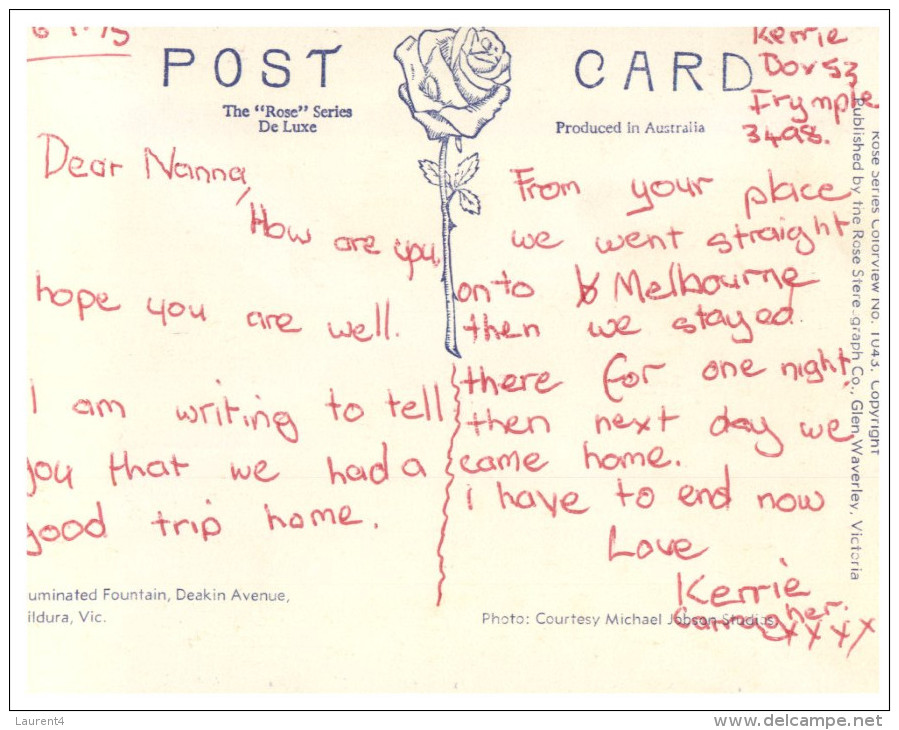 POST CARD
The "Rose" Series
De Luxe
Produced in Australia
Kerrie
Box 53
Irymple
3498.
Dear Nanna,
How are you,
hope you are well.
I am writing to tell
you that we had a
good trip home.
From your place
we went straight
onto Melbourne
then we stayed
there for one night,
then next day we
came home.
i have to end now
Love
Kerrie
Carragher.
xxxx
uminated Fountain, Deakin Avenue,
ildura, Vic.
Photo: Courtesy Michael Jobson Studios.
Rose Series Colorview No. 1043. Copyright
Published by the Rose Stereograph Co., Glen Waverley, Victoria
Laurent4
www.delcampe.net